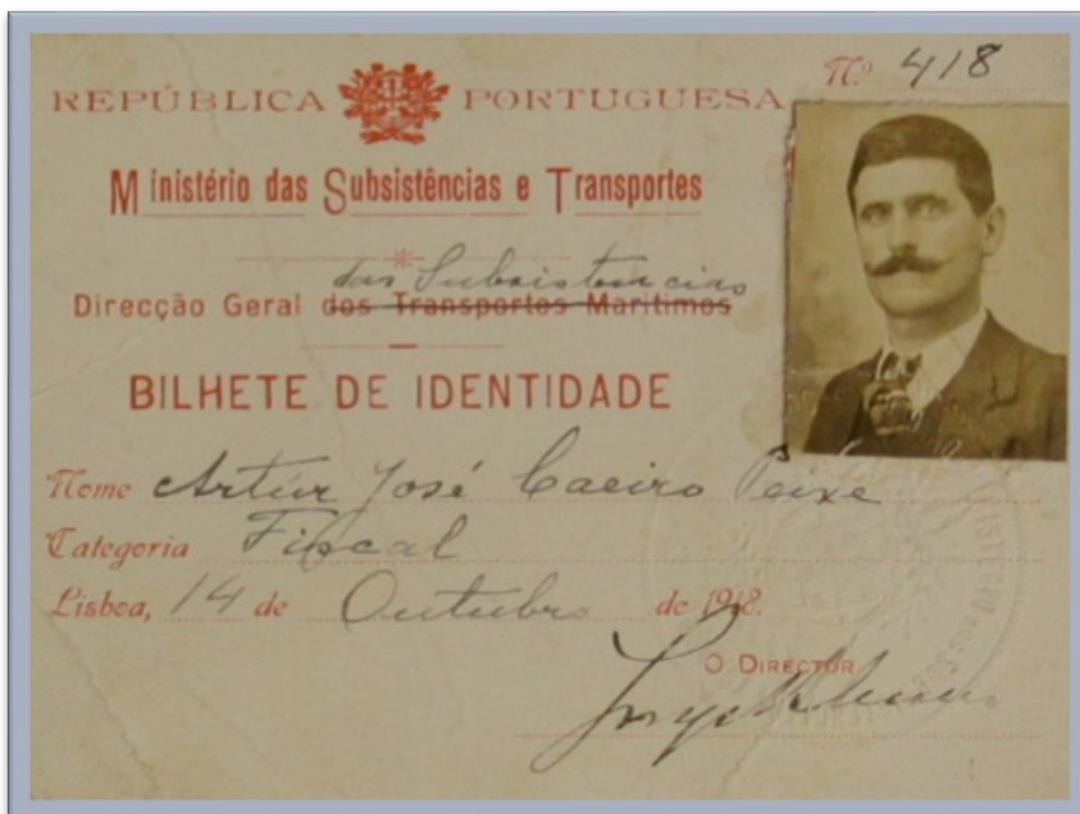 Nº 418
REPÚBLICA PORTUGUESA
Ministério das Subsistências e Transportes
das Subsistencias
Direcção Geral dos Transportes Marítimos
BILHETE DE IDENTIDADE
Nome Artur José Caeiro Peixe
Categoria Fiscal
Lisboa, 14 de Outubro de 1918.
O DIRECTOR